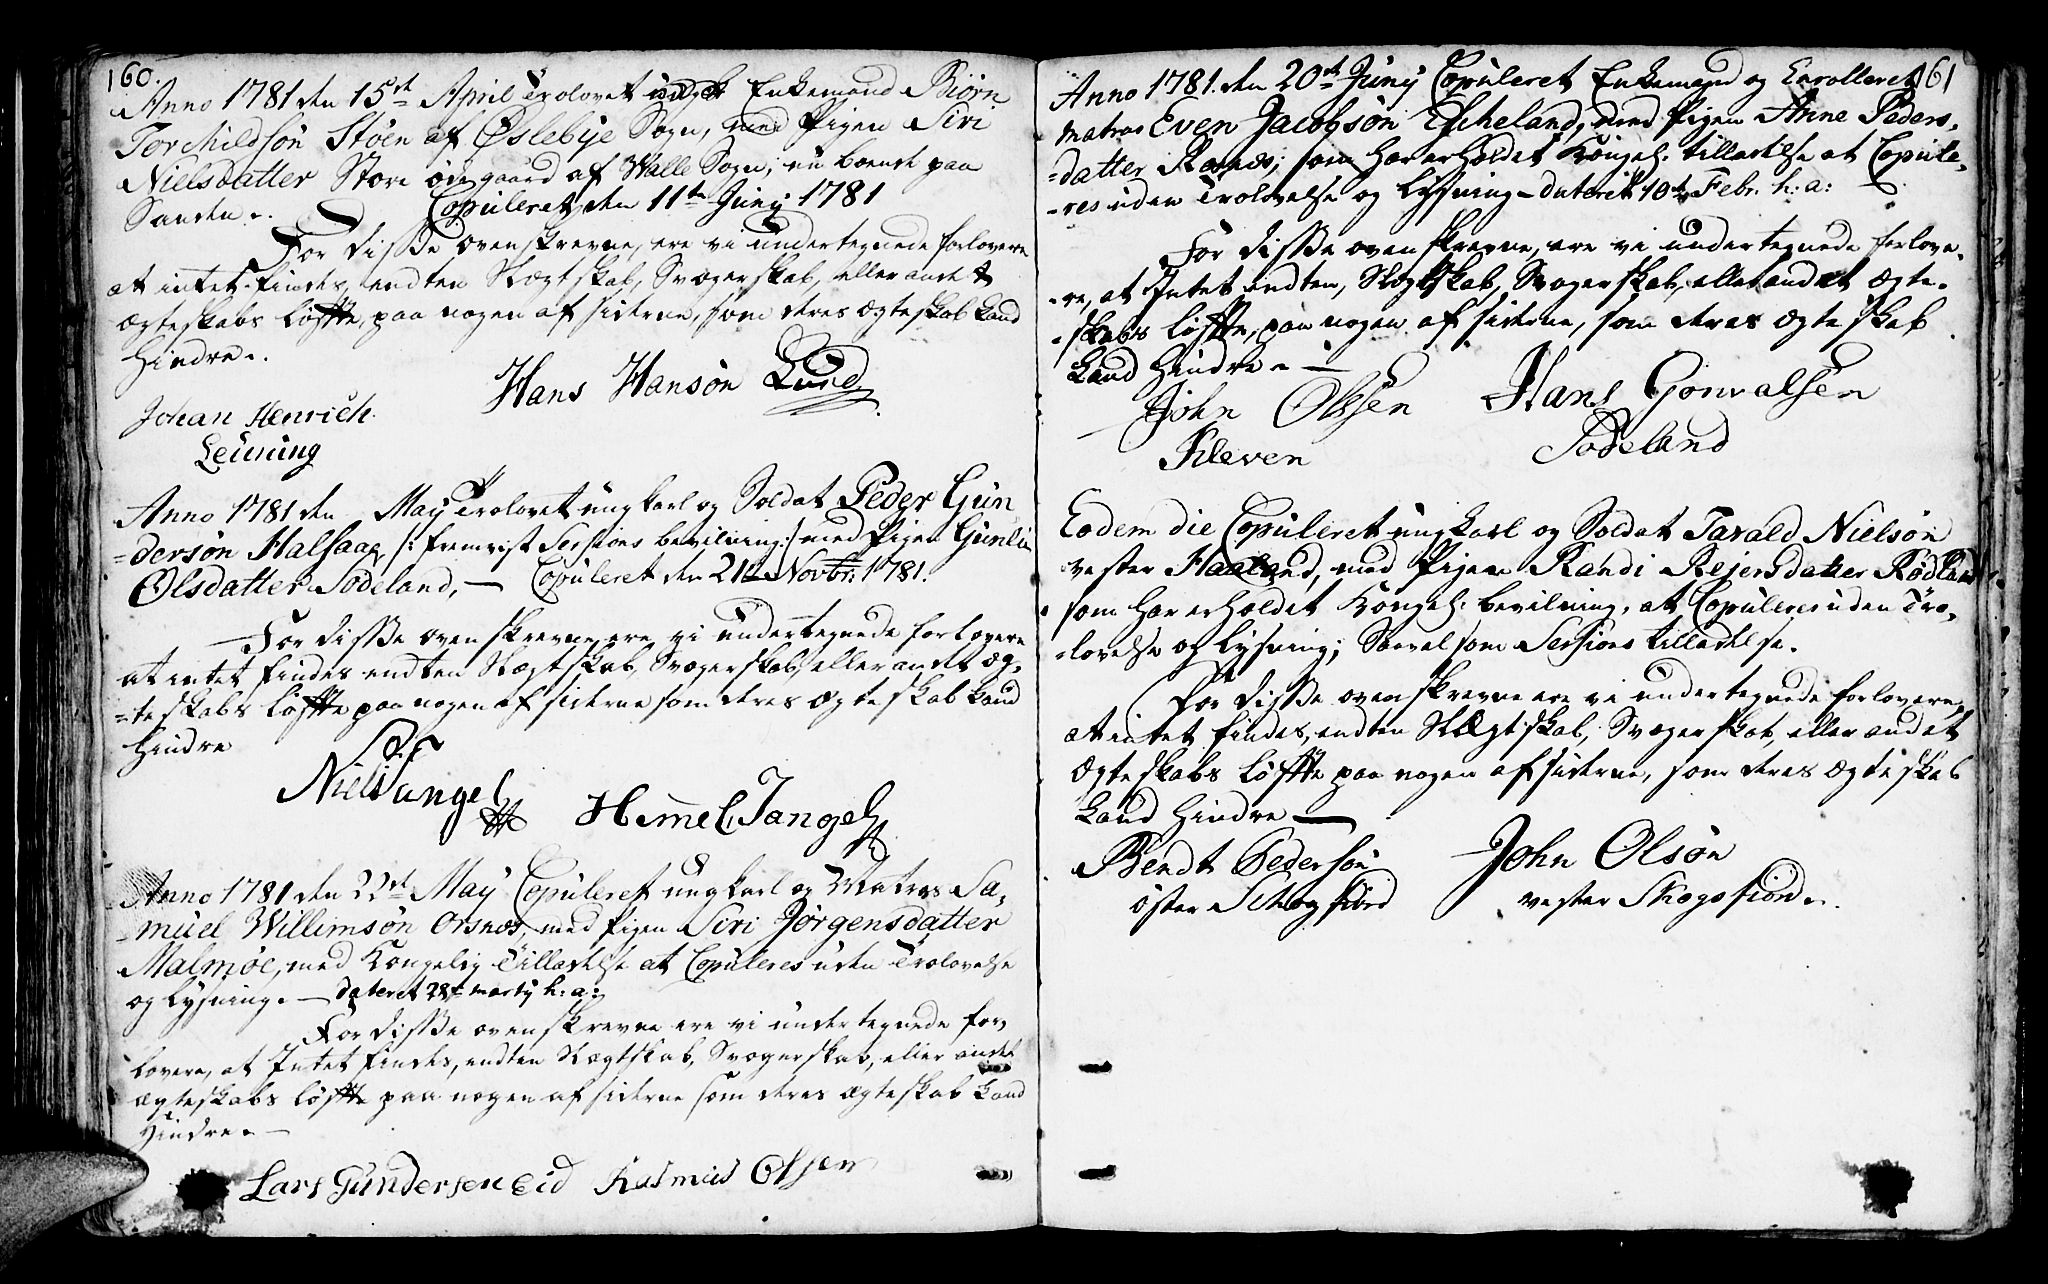 160.
Anno 1781 den 15de April Trolovet Enkemand Biørn
Torchildsøn Støen af Øslebye Sogn, med Pigen Siri
Nielsdatter Store ødegaard af Halle Sogn, nu boende paa
Sanden. Copuleret den 11te Junij 1781
For disse ovenskrevne, ere vi undertegnede forlovere
at intet findes, endten Slægtskab, Svogerskab, eller andet
ægteskabs løffte, paa nogen af siderne, som deres ægteskab kand
hindre.
Hans Hansøn Lund
Johan Henrich
Leuning
Anno 1781 den May Trolovet ungkarl og Soldat Peder Gun
=dersøn Halsaae /: fremvist Sessions bevilning :/ med Pigen Gunlu
Olsdatter Sodeland, — Copuleret den 21de Novbr: 1781.
For disse ovenskrevne, ere vi undertegnede forlovere
at intet findes endten Slægtskab, Svogerskab, eller andet æg,
=teskabs løffte paa nogen af siderne som deres ægteskab kand
hindre
Niels Tangel Hemel Tangel
Anno 1781 den 22de May Copuleret ungkarl og Matros Sa,
=muel Willimsøn Orsnes, med Pigen Siri Jørgensdatter
Malmøe, med Kongelig Tilladelse at Copuleres uden Trolovelse
og lysning. — dateret 28de marty h: a:
For disse ovenskrevne ere vi undertegnede for,
lovere, at Intet findes, endten Slægtskab, Svogerskab, eller andet
ægteskabs løffte paa nogen af siderne som deres ægteskab kand
hindre. —
Lars Gundersen Eid Rasmus Olsen
161
Anno 1781. den 20de Junij Copuleret Enkemand og Enrolleret
matros Even Jacobsøn Escheland, med Pigen Anne Peders,
=datter Ranes, som har erholdet Kongel: tilladelse at Copule,
=res uden Trolovelse og lysning - dateret 10de Febr. h: a:
For disse ovenskrevne, ere vi undertegnede forlove,
=re, at Intet endten, Slægtskab, Svogerskab, eller andet ægte=
=skabs løffte, paa nogen af siderne, som deres ægteskab
kand hindre. —
John Olssen Hans Gonvalsen
Kleven Sodeland
Eodem die Copuleret ungkarl og Soldat Tarald Nielsøn
vester Haaland, med Pigen Randi Rejersdatter Rødland
som har erholdet Kongel: bevilning, at Copuleres uden Tro,
=lovelse og lysning; Saavel som Sessions tilladelse.
For disse ovenskrevne ere vi undertegnede forlovere,
at intet findes, endten Slægtskab, Svogerskab, eller andet
Ægteskabs løffte paa nogen af siderne, som deres ægteskab
kand hindre —
Bendt Pedersøn John Olsøn
øster Skogsfiord vester Skogsfiord.